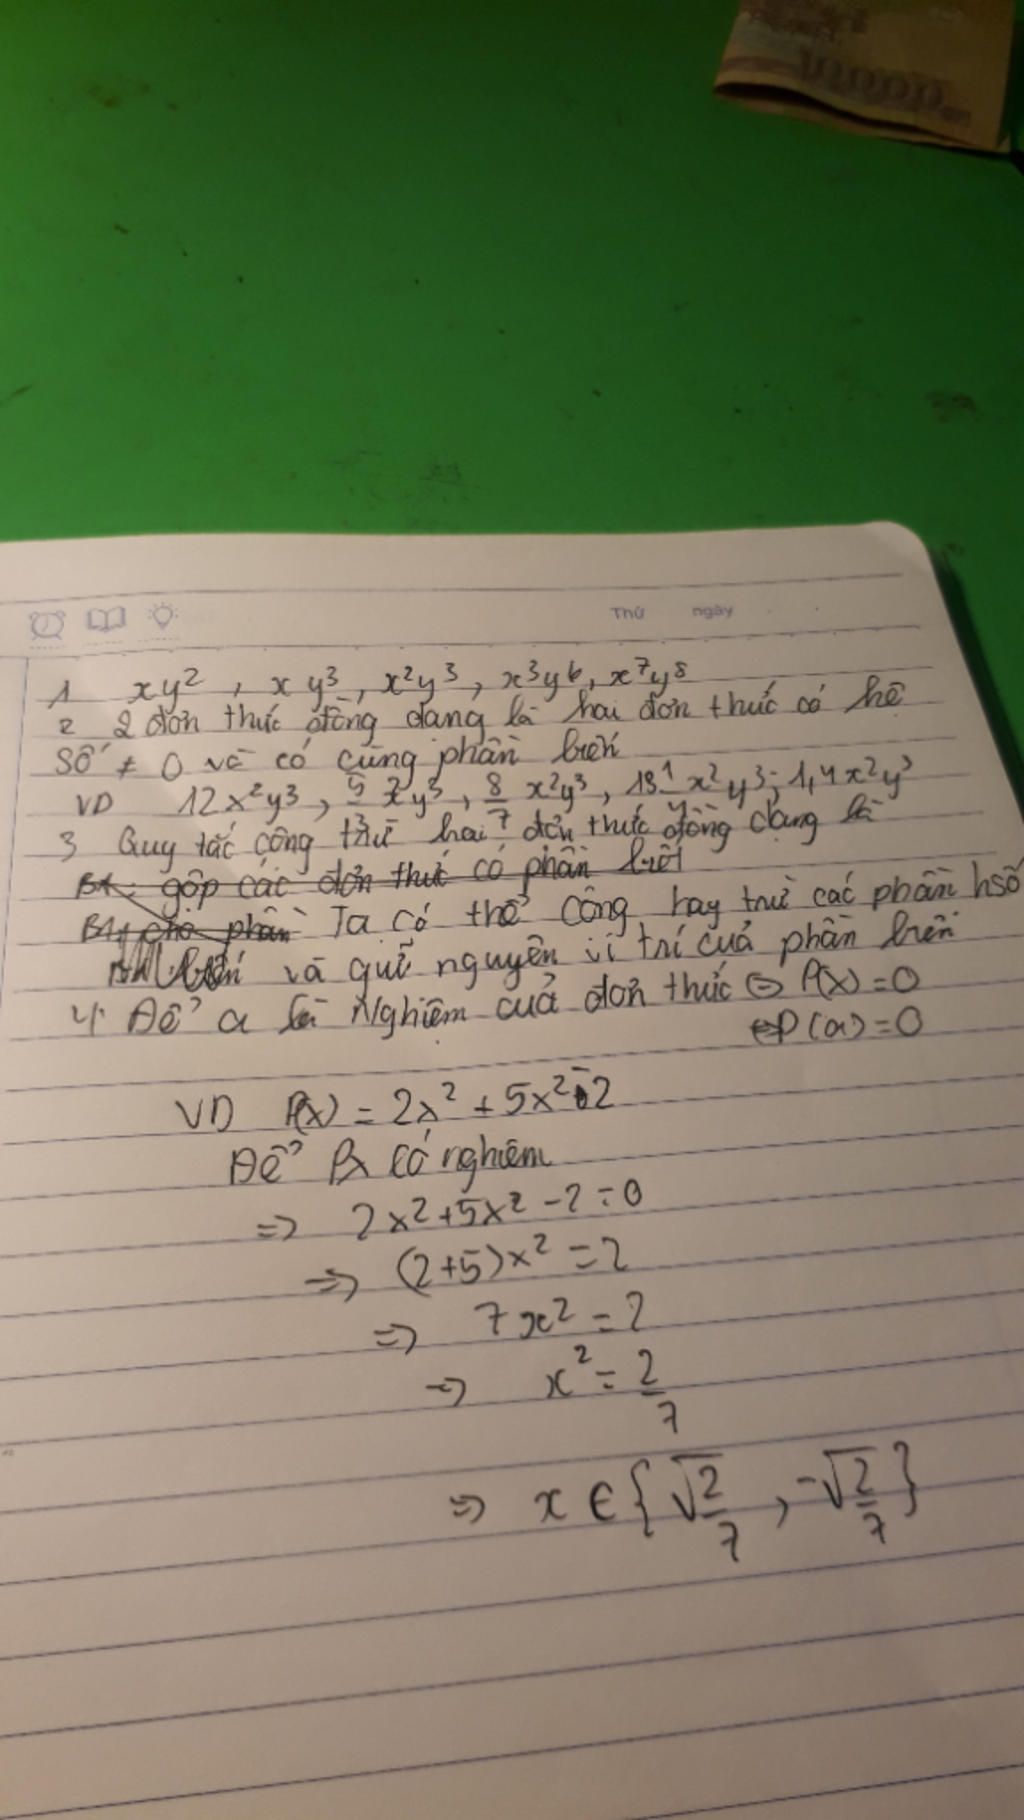 Thứ ngày
1 xy², xy³, x²y³, x³y⁶, x⁷y⁸
2 2 đơn thức đồng dạng là hai đơn thức có hệ
Số ≠ 0 và có cùng phần biến
VD 12x²y³, 5 x²y³, 8/7 x²y³, 13 x²y³; 1,4x²y³
3 Quy tắc cộng trừ hai đơn thức đồng dạng là
B1: gộp các đơn thức có phần biến
phần Ta có thể cộng hay trừ các phần hsố
và giữ nguyên vị trí của phần biến
4 Để a là Nghiệm của đơn thức P(x) = 0
⇔ P(a) = 0
VD P(x) = 2x² + 5x² - 2
Để Px có nghiệm
=> 2x² + 5x² - 2 = 0
=> (2+5)x² = 2
=> 7x² = 2
=> x² = 2/7
=> x ∈ {√2/7, -√2/7}